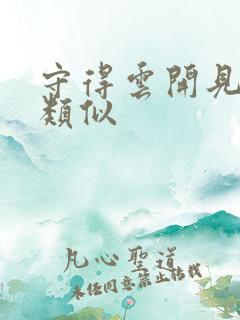 守得雲開見
類似
凡心聖道
未经同意禁止转载